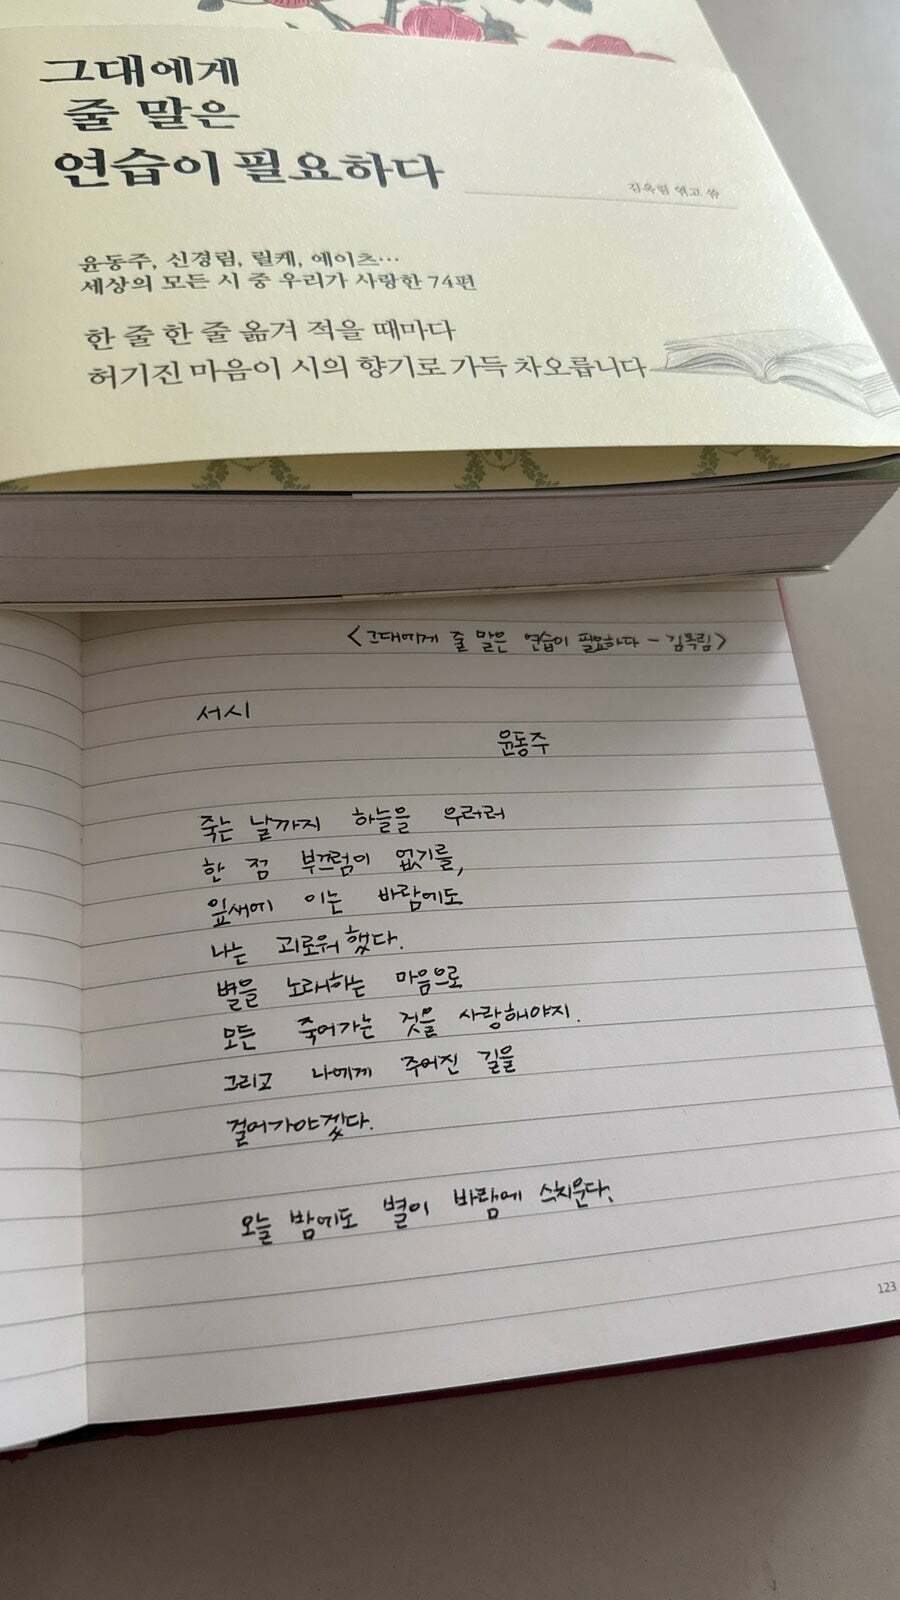 그대에게
줄 말은
연습이 필요하다
김옥림 엮고 씀
윤동주, 신경림, 릴케, 예이츠…
세상의 모든 시 중 우리가 사랑한 74편
한 줄 한 줄 옮겨 적을 때마다
허기진 마음이 시의 향기로 가득 차오릅니다
<그대에게 줄 말은 연습이 필요하다 - 김옥림>
서시
윤동주
죽는 날까지 하늘을 우러러
한 점 부끄럼이 없기를,
잎새에 이는 바람에도
나는 괴로워했다.
별을 노래하는 마음으로
모든 죽어가는 것을 사랑해야지.
그리고 나에게 주어진 길을
걸어가야겠다.
오늘 밤에도 별이 바람에 스치운다.
123